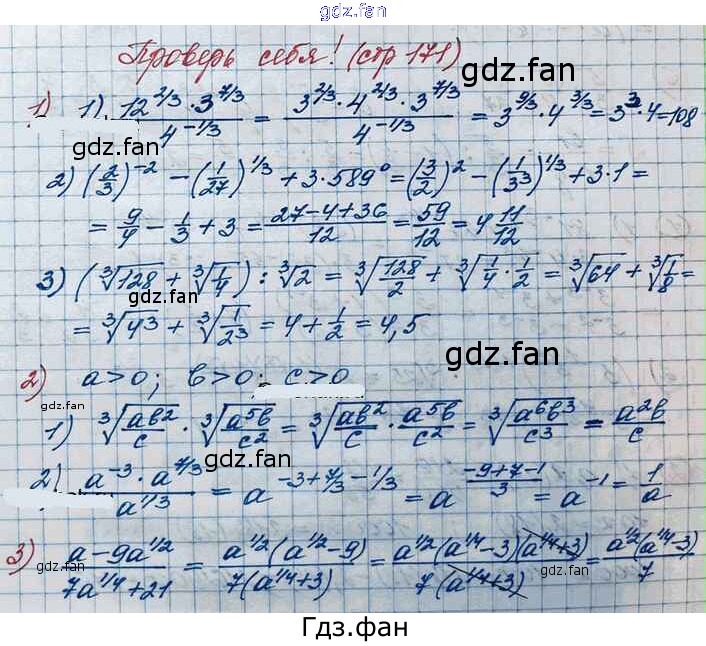 gdz.fan
Проверь себя! (стр 171)
gdz.fan
1) 1) (12^(2/3) · 3^(7/3))/(4^(-1/3)) = (3^(2/3) · 4^(2/3) · 3^(7/3))/(4^(-1/3)) = 3^(9/3) · 4^(3/3) = 3^3 · 4 = 108
gdz.fan
2) (2/3)^(-2) - (1/27)^(1/3) + 3 · 589^0 = (3/2)^2 - (1/3^3)^(1/3) + 3 · 1 =
= 9/4 - 1/3 + 3 = (27-4+36)/12 = 59/12 = 4 11/12
3) (∛128 + ∛(1/4)) : ∛2 = ∛(128/2) + ∛(1/4 · 1/2) = ∛64 + ∛(1/8) =
gdz.fan
gdz.fan
= ∛(4^3) + ∛(1/2^3) = 4 + 1/2 = 4,5
gdz.fan
2) a>0; b>0; c>0
gdz.fan
1) ∛(ab^2/c) · ∛(a^5b/c^2) = ∛(ab^2/c · a^5b/c^2) = ∛(a^6b^3/c^3) = a^2b/c
gdz.fan
2) (a^(-3) · a^(7/3))/(a^(1/3)) = a^(-3+7/3-1/3) = a^((-9+7-1)/3) = a^(-1) = 1/a
3) (a-9a^(1/2))/(7a^(1/4)+21) = (a^(1/2)(a^(1/2)-9))/(7(a^(1/4)+3)) = (a^(1/2)(a^(1/4)-3)(a^(1/4)+3))/(7(a^(1/4)+3)) = (a^(1/2)(a^(1/4)-3))/7
gdz.fan
Гдз.фан